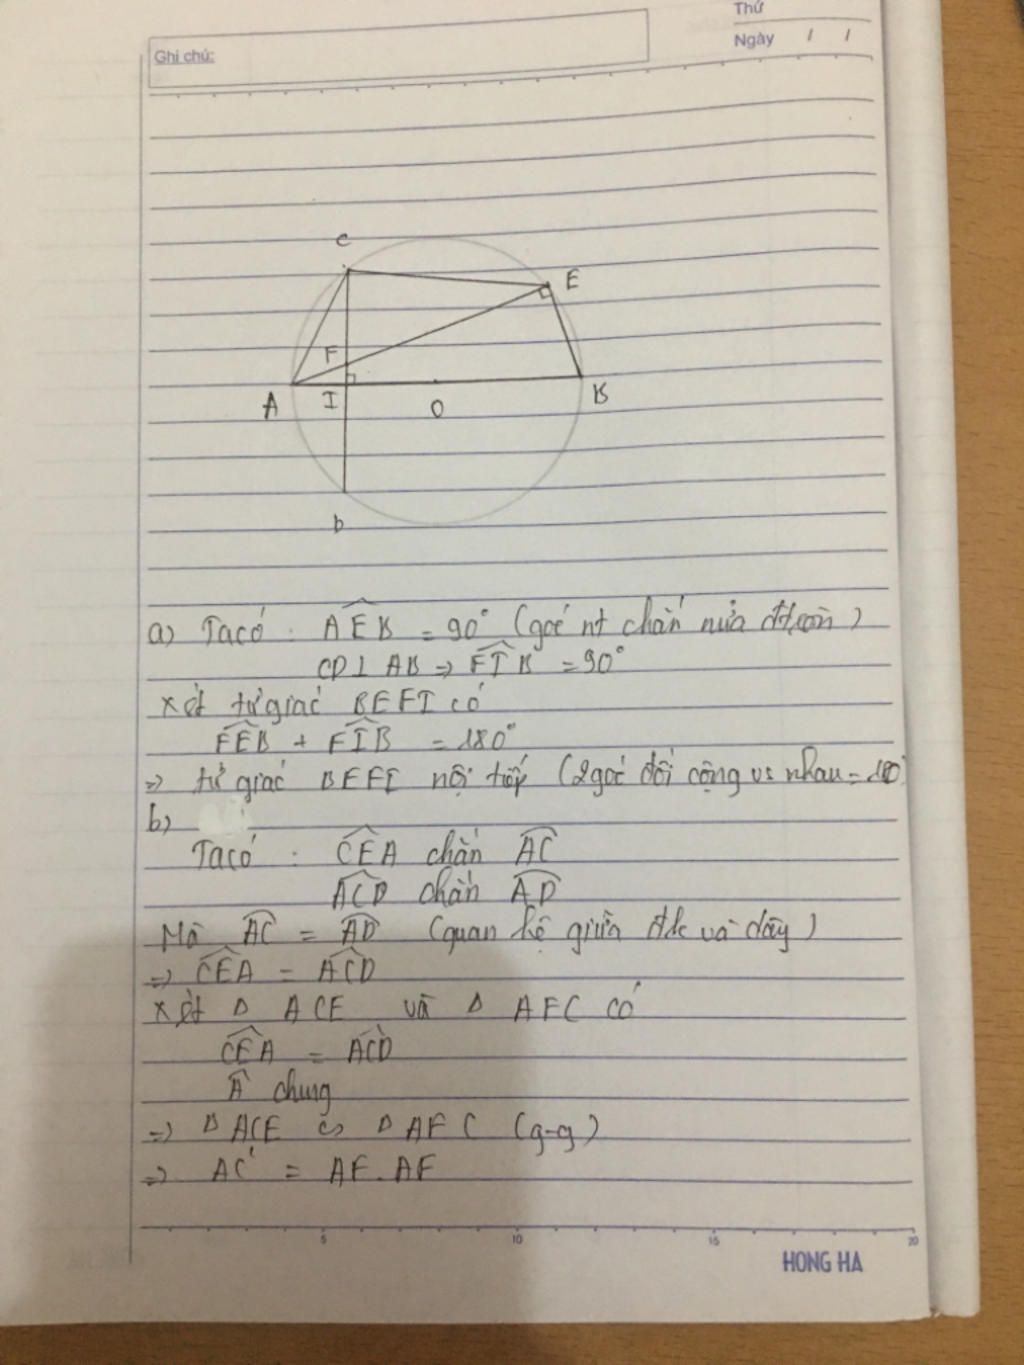 Thứ
Ngày / /
Ghi chú:
C
E
F
A
I
O
B
D
a) Ta có : AEB = 90° (góc nt chắn nửa đt tròn)
CD ⊥ AB ⇒ FIB = 90°
Xét tứ giác BEFI có
FEB + FIB = 180°
⇒ tứ giác BEFI nội tiếp (2 góc đối cộng vs nhau = 180
b)
Ta có : CEA chắn AC
ACD chắn AD
Mà AC = AD (quan hệ giữa đk và dây)
⇒ CEA = ACD
Xét Δ ACE và Δ AFC có
CEA = ACD
A chung
⇒ Δ ACE ∽ Δ AFC (g-g)
⇒ AC² = AE . AF
5 10 15 20
HONG HA